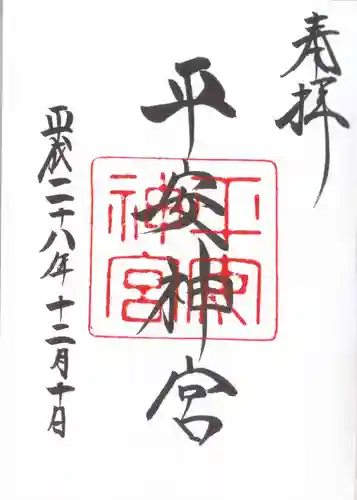 奉拝
平安神宮
平安神宮
平成二十八年十二月十日